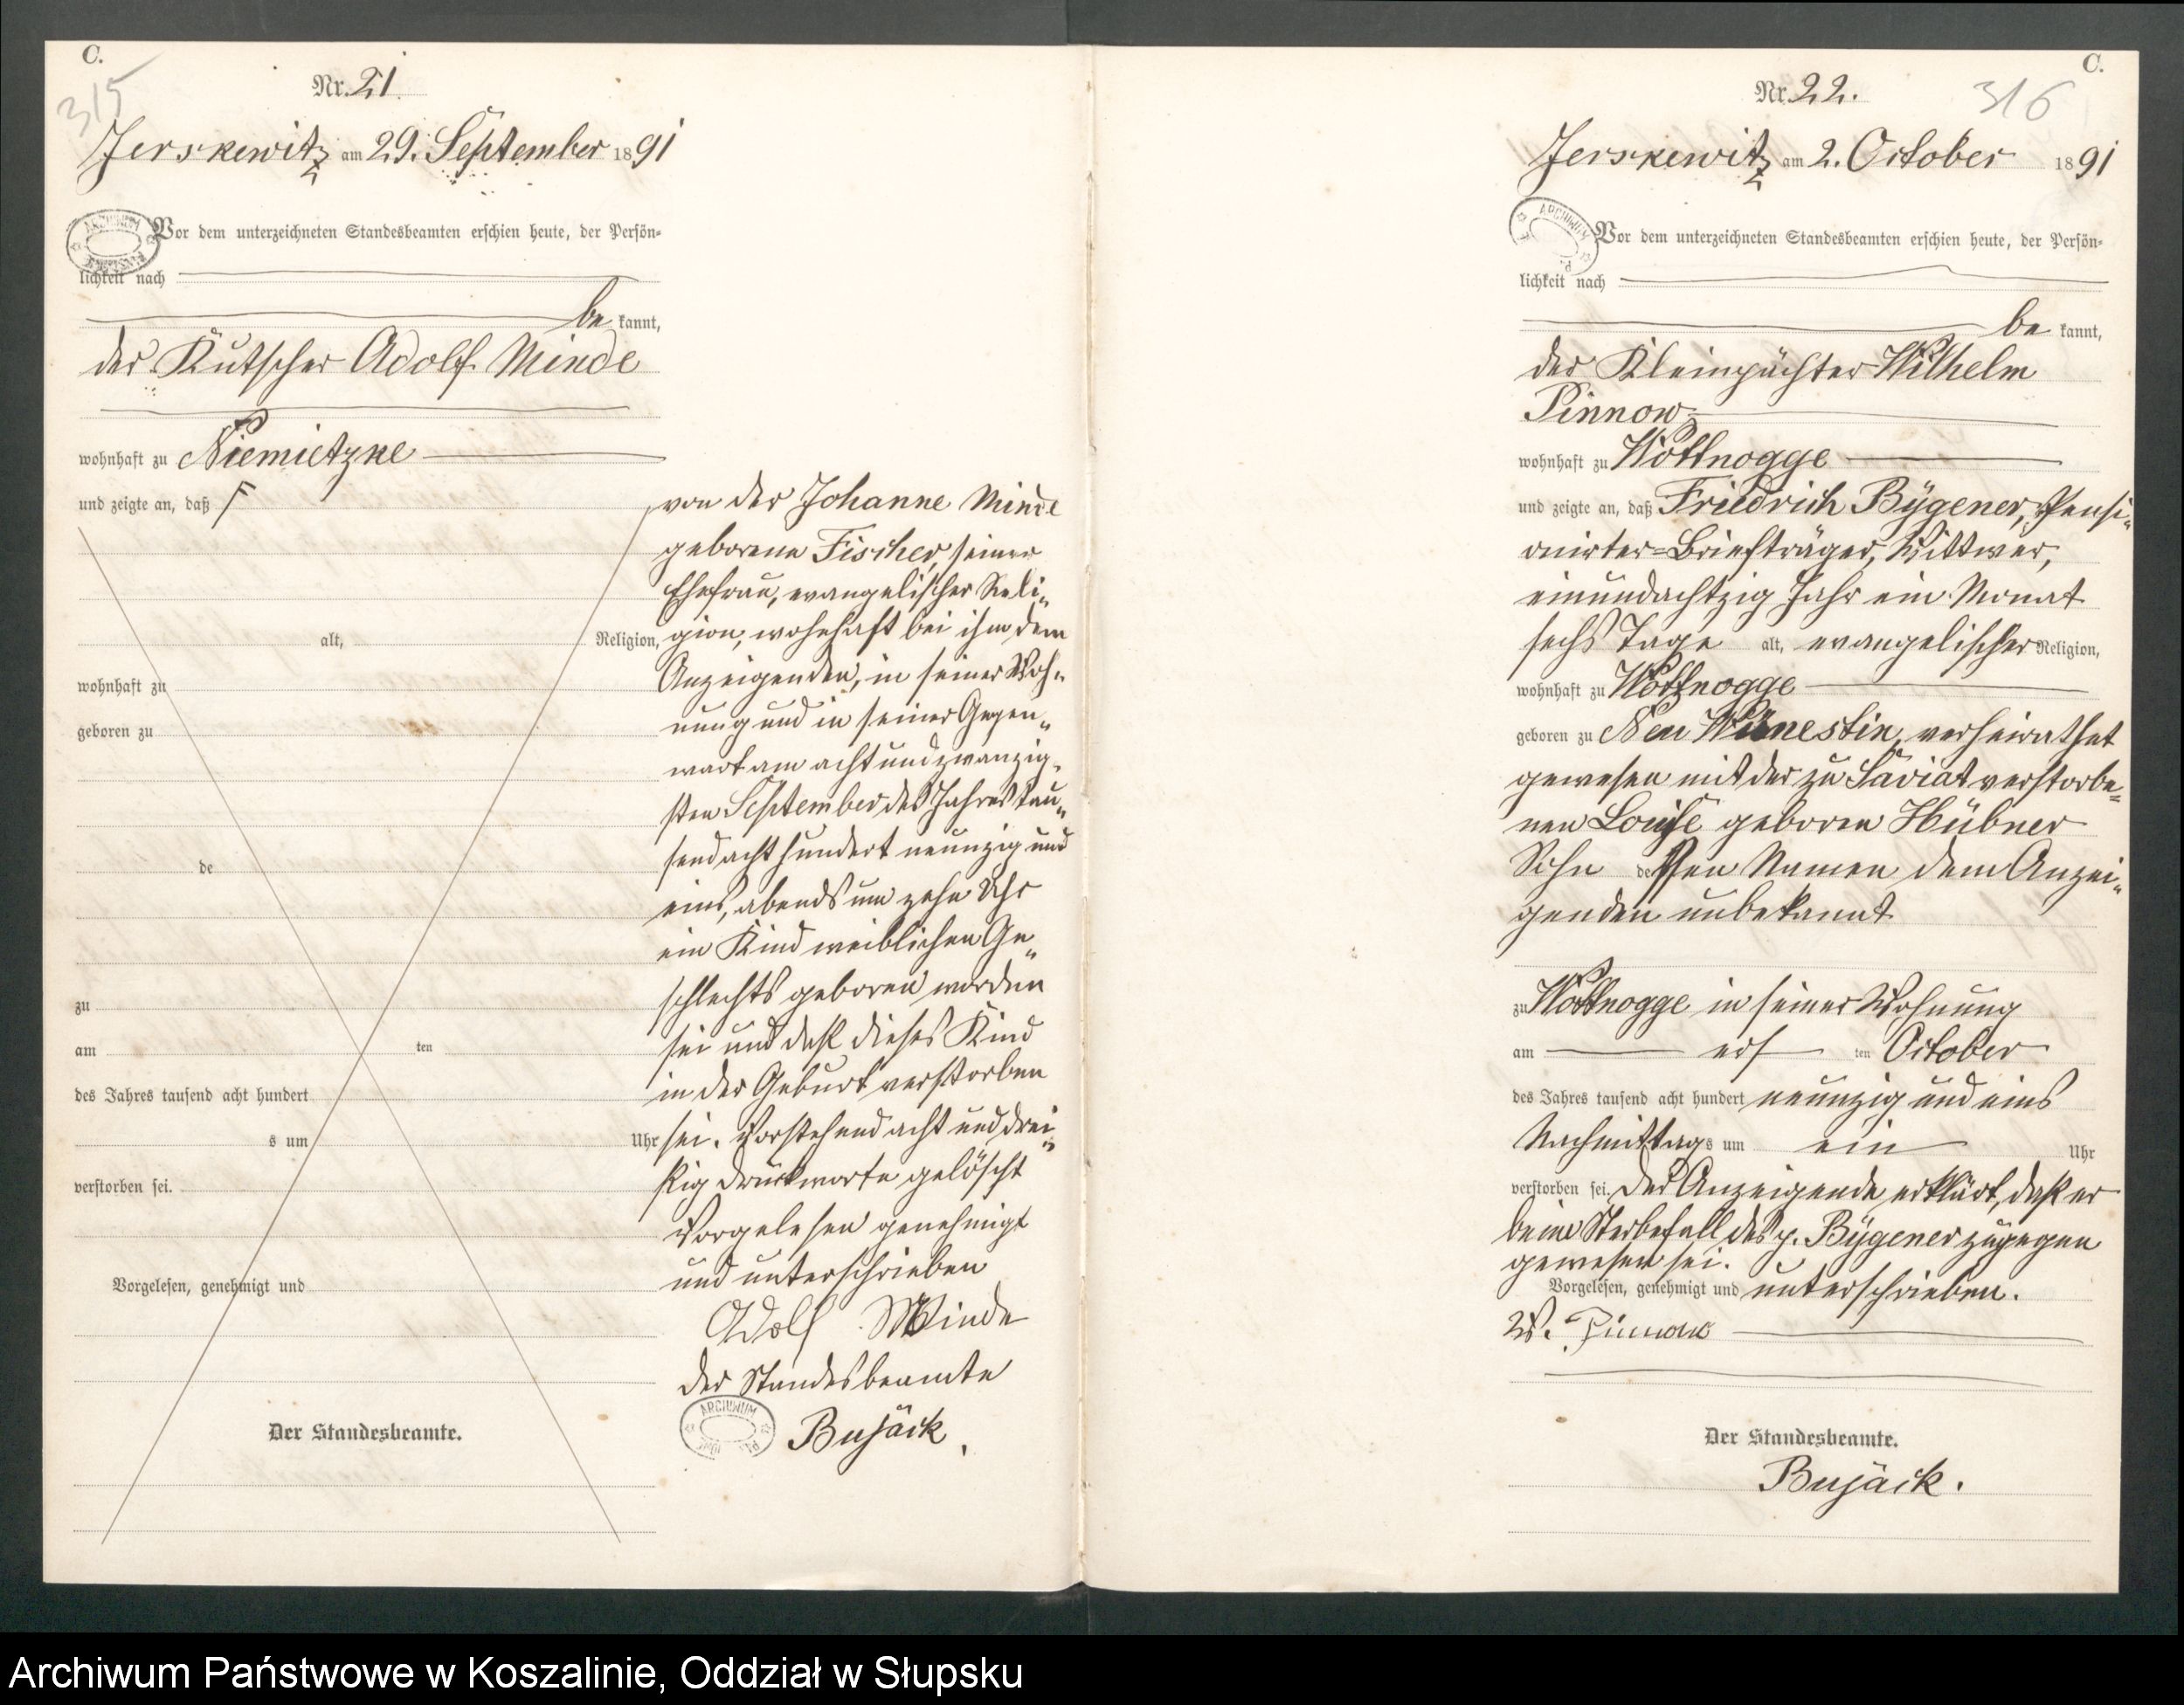 C.
315
Nr. 21.
Jerskewitz am 29. September 1891
Vor dem unterzeichneten Standesbeamten erschien heute, der Persön-
lichkeit nach
bekannt,
der Kutscher Adolf Minde
wohnhaft zu Niemietzke
und zeigte an, daß
von der Johanne Minde
geborene Fischer, seiner
Ehefrau, evangelischer Reli-
alt, Religion, gion, wohnhaft bei ihm dem
wohnhaft zu Anzeigenden, in seiner Woh-
geboren zu nung und in seiner Gegen-
wart am acht und zwanzig-
sten September des Jahres tau-
de send acht hundert neunzig und
eins, abends um zehn Uhr
ein Kind weiblichen Ge-
zu schlechts geboren worden
am ten sei und daß dieses Kind
des Jahres tausend acht hundert in der Geburt verstorben
s um Uhr sei. Vorstehend acht und drei-
verstorben sei. ßig Druckworte gelöscht
Vorgelesen genehmigt
Vorgelesen, genehmigt und und unterschrieben
Adolf Minde
der Standesbeamte
Der Standesbeamte. Bujäck.
ARCHIWUM
C.
316
Nr. 22.
Jerskewitz am 2. October 1891
ARCHIWUM
Vor dem unterzeichneten Standesbeamten erschien heute, der Persön-
lichkeit nach
bekannt,
der Kleinpächter Wilhelm
Pinnow
wohnhaft zu Wottnogge
und zeigte an, daß Friedrich Bÿgener, Pensi-
onirter-Briefträger, Wittwer,
einundachtzig Jahr ein Monat
sechs Tage alt, evangelischer Religion,
wohnhaft zu Wottnogge
geboren zu Neu verheirathet
gewesen mit der zu Saviat verstorbe-
nen Louise geboren Hübner
Sohn dessen Namen dem Anzei-
genden unbekannt
zu Wottnogge in seiner Wohnung
am ers ten October
des Jahres tausend acht hundert neunzig und eins
Nachmittags um ein Uhr
verstorben sei. Der Anzeigende erklärt, daß er
beim Sterbefall des p. Bÿgener zugegen
gewesen sei.
Vorgelesen, genehmigt und unterschrieben.
W. Pinnow
Der Standesbeamte.
Bujäck.
Archiwum Państwowe w Koszalinie, Oddział w Słupsku